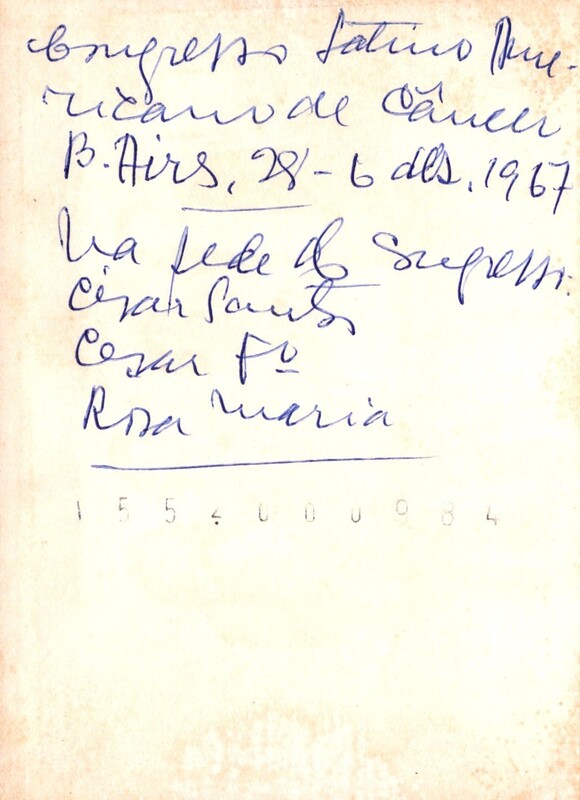 Congresso Latino Ame-
ricano de Câncer
B. Aires, 28 - 6 des. 1967
Na sede do Congresso.
César Santos
Cesar Fº
Rosa Maria
1552000984